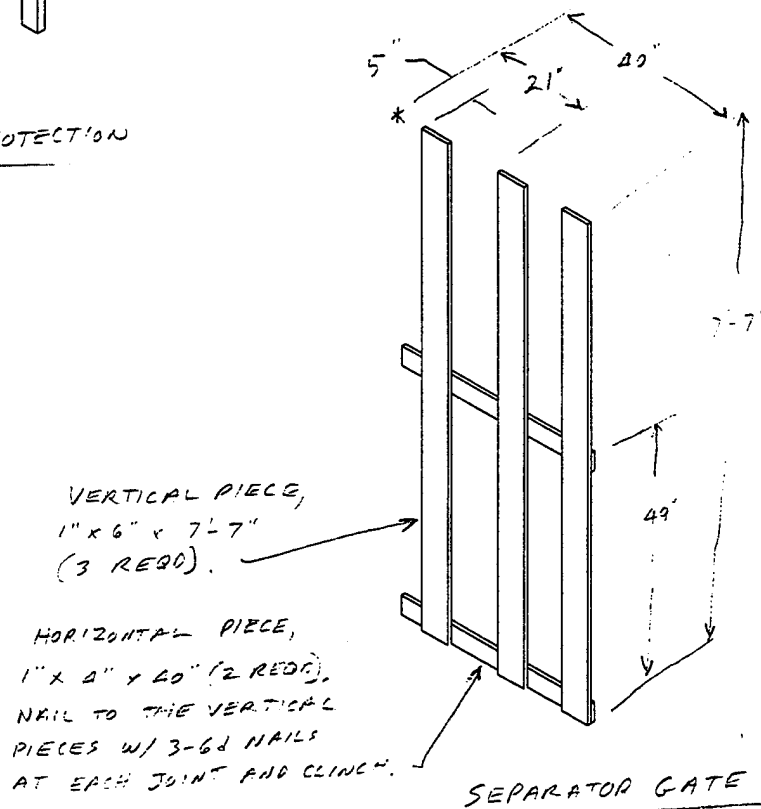 5"
21"
40"
*
OTECTION
7'-7"
49"
VERTICAL PIECE,
1" x 6" x 7'-7"
(3 REQD).
HORIZONTAL PIECE,
1" x 4" x 40" (2 REQD).
NAIL TO THE VERTICAL
PIECES W/ 3-6d NAILS
AT EACH JOINT AND CLINCH.
SEPARATOR GATE